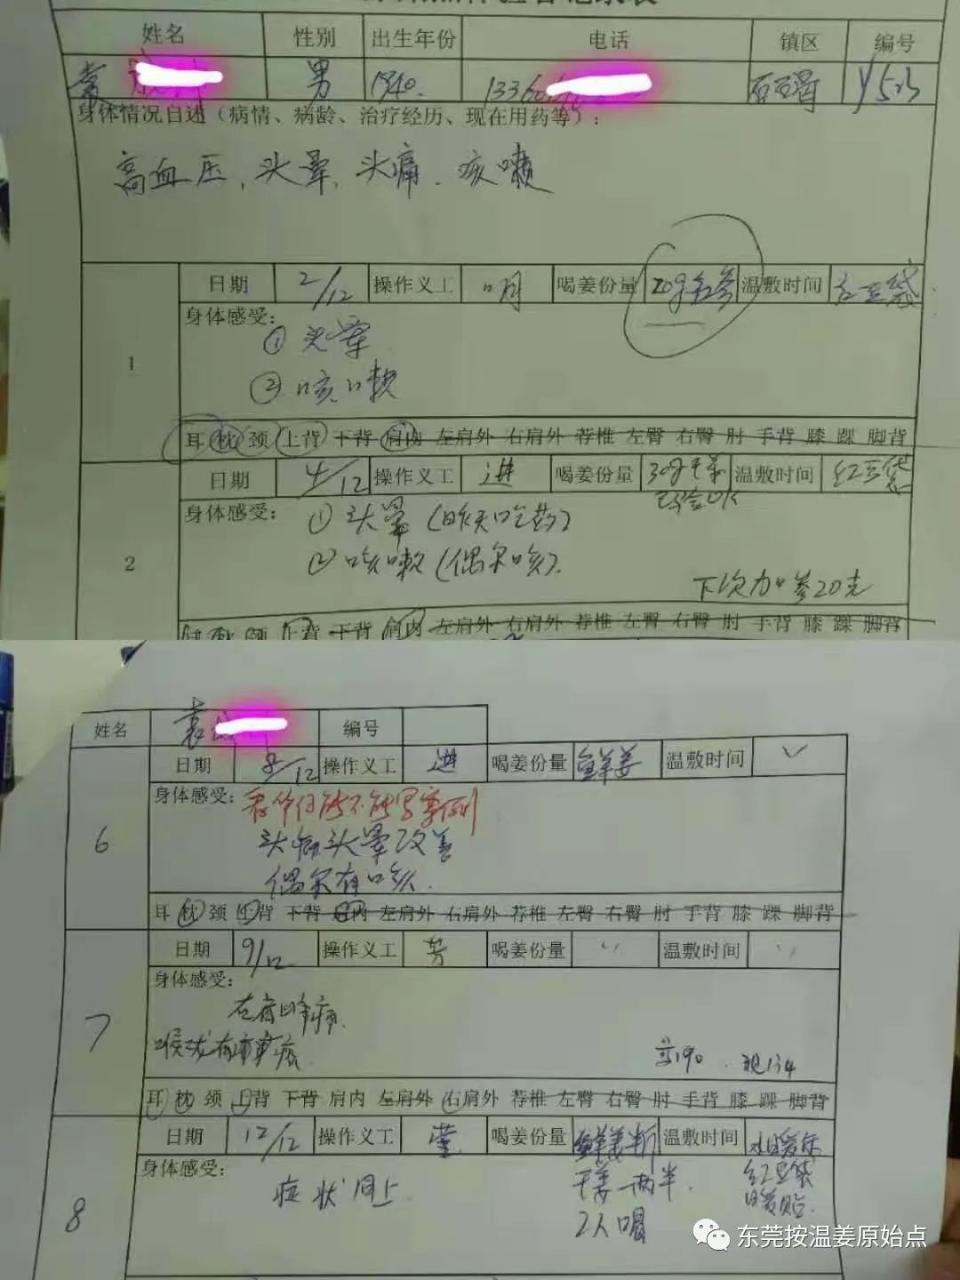 姓名 性别 出生年份 电话 镇区 编号
袁 男 1940. 1336 石碣
身体情况自述（病情、病龄、治疗经历、现在用药等）：
高血压，头晕，头痛．咳嗽
日期 2/12 操作义工 喝姜份量 20g 温敷时间 红豆袋
身体感受：
① 头晕
1
② 咳嗽
耳 枕 颈 上背 下背 肩内 左肩外 右肩外 荐椎 左臀 右臀 肘 手背 膝 踝 脚背
日期 4/12 操作义工 进 喝姜份量 30g干姜 温敷时间 红豆袋
身体感受：
① 头晕（昨天吃药）
2
② 咳嗽（偶尔咳）．
下次加参20克
耳 枕 颈 上背 下背 肩内 左肩外 右肩外 荐椎 左臀 右臀 肘 手背 膝 踝 脚背
姓名 袁 编号
日期 8/12 操作义工 进 喝姜份量 鲜姜 温敷时间 ✓
身体感受：
头痛头晕改善
6
偶尔有咳．
耳 枕 颈 上背 下背 肩内 左肩外 右肩外 荐椎 左臀 右臀 肘 手背 膝 踝 脚背
日期 9/12 操作义工 芳 喝姜份量 温敷时间
身体感受：
7
190 现134
耳 枕 颈 上背 下背 肩内 左肩外 右肩外 荐椎 左臀 右臀 肘 手背 膝 踝 脚背
日期 12/12 操作义工 喝姜份量 鲜姜半斤 温敷时间
身体感受：
症状同上
干姜一两半． 红豆袋
8
2人喝 暖贴
东莞按温姜原始点